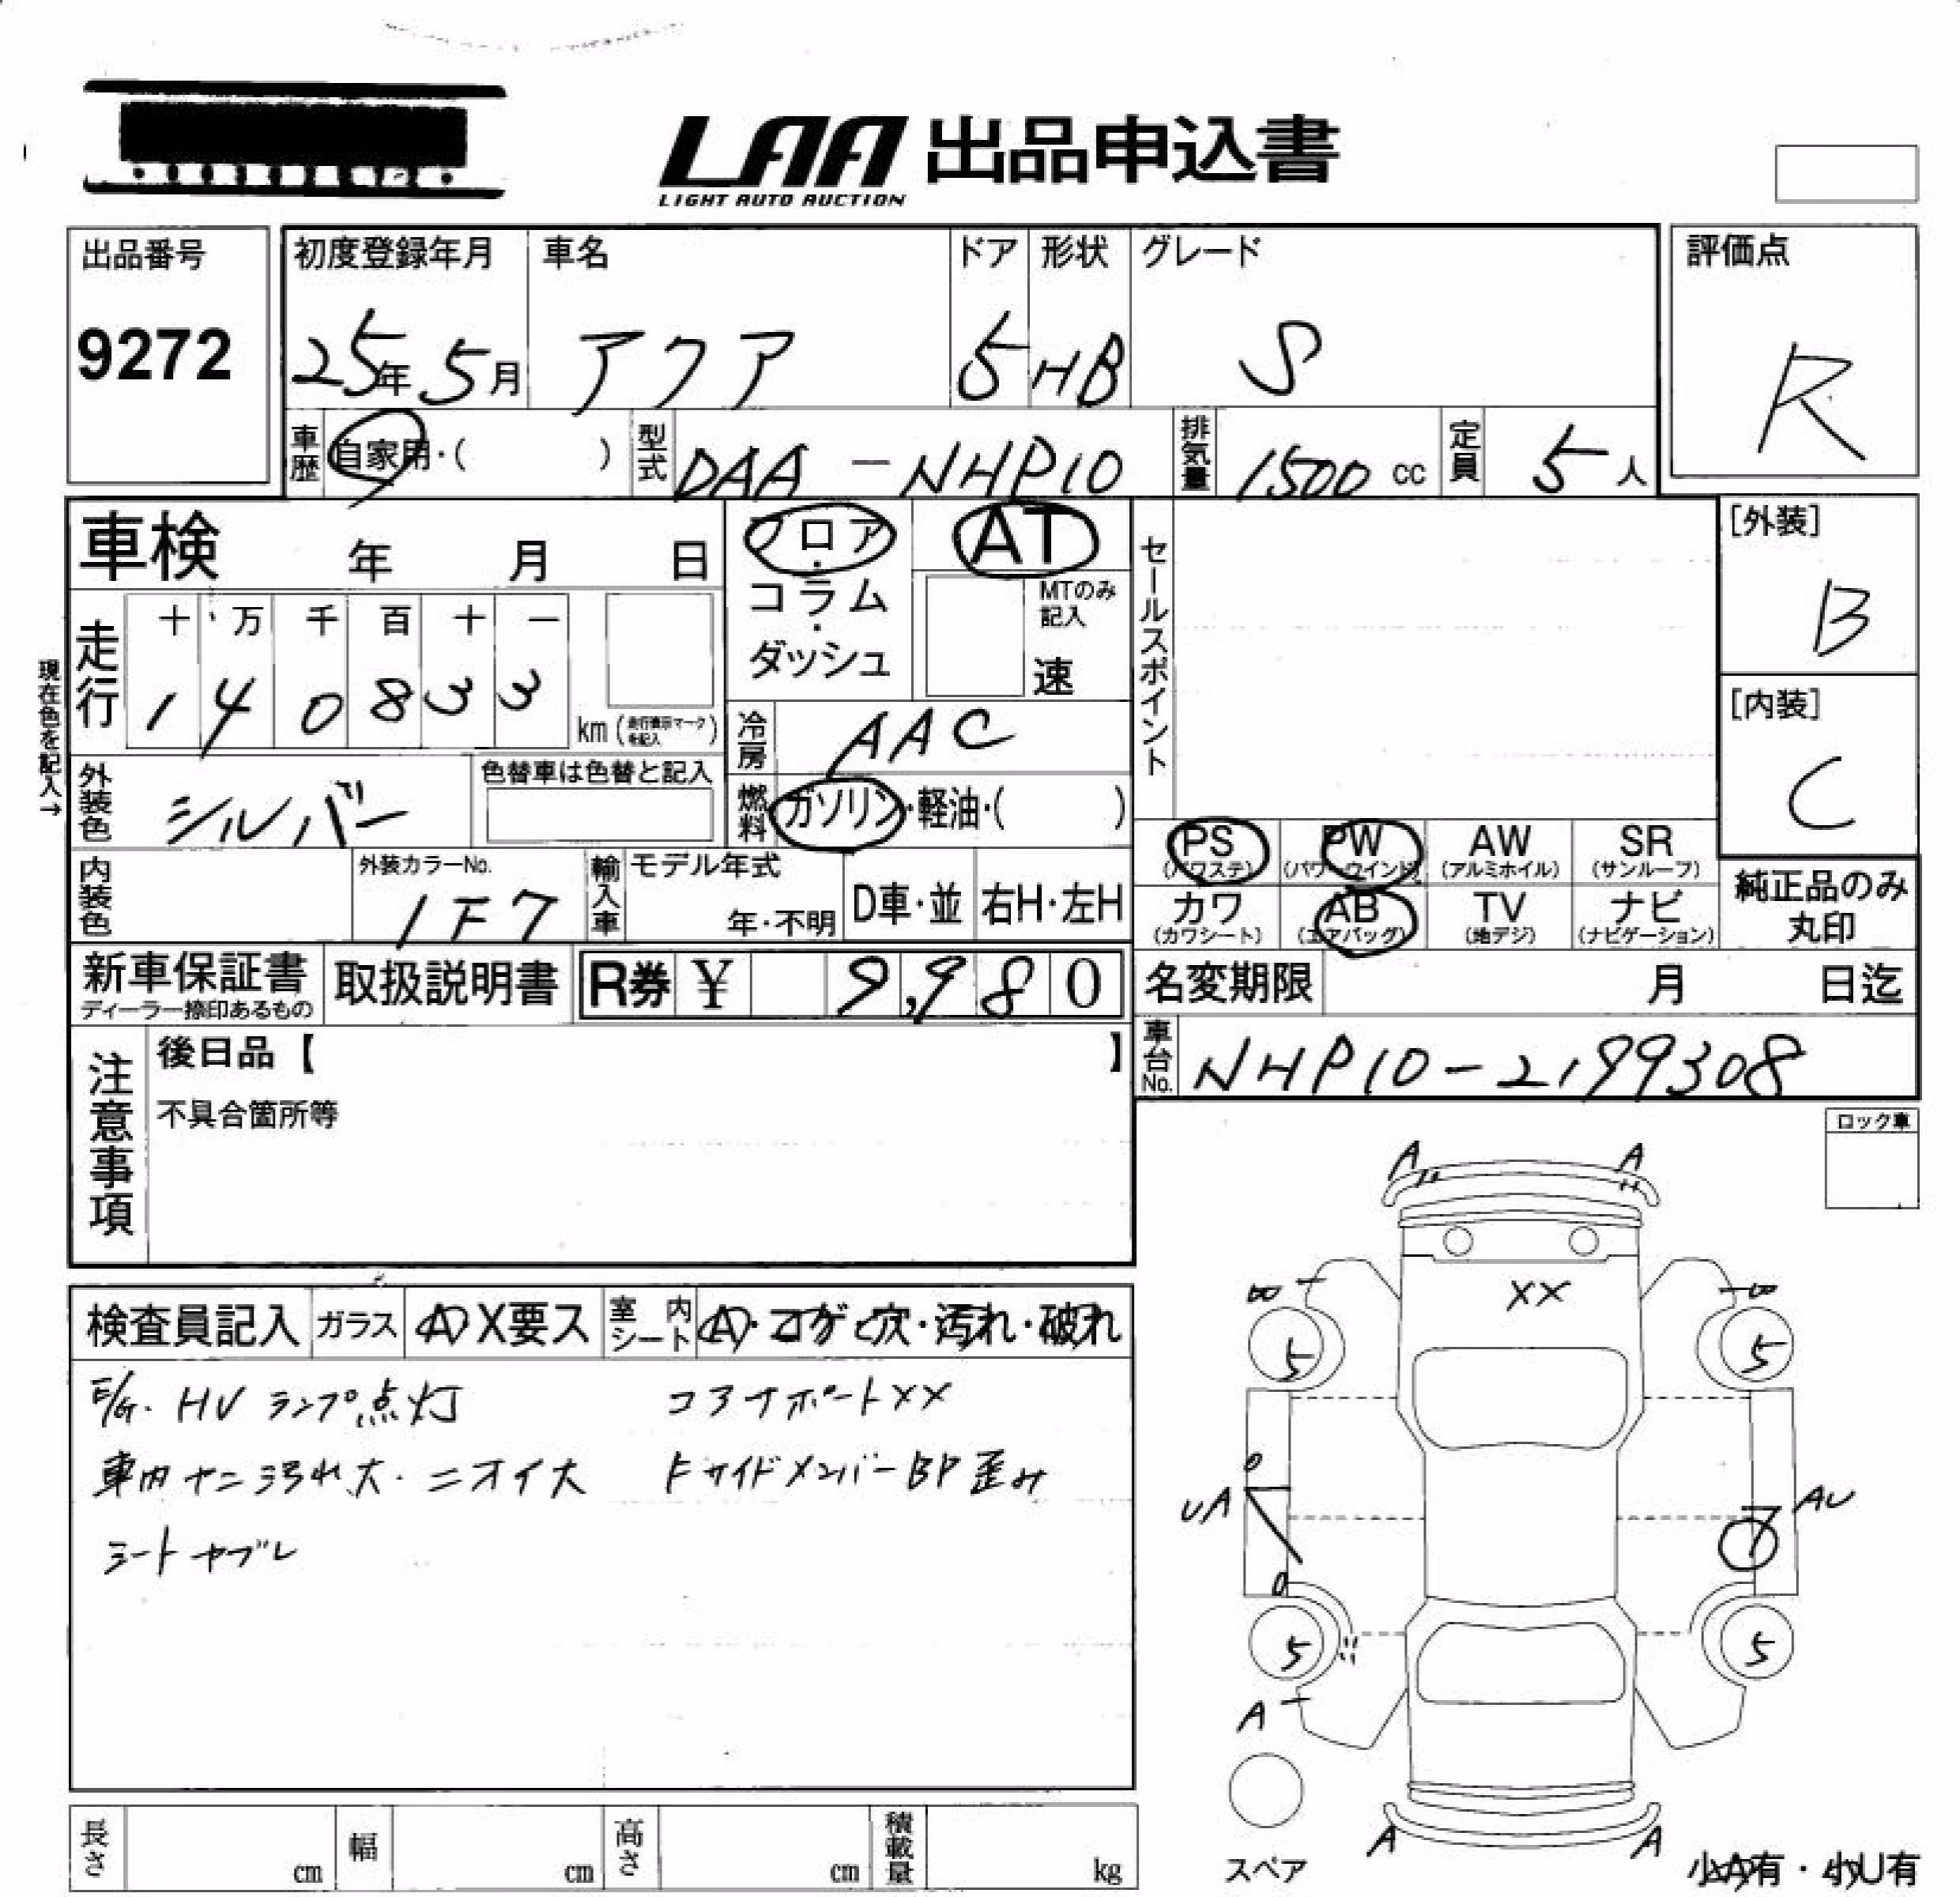 LAA 出品申込書
LIGHT AUTO AUCTION
出品番号
9272
初度登録年月
25年5月
車名
アクア
ドア
5
形状
HB
グレード
S
評価点
R
車歴
自家用・( )
型式
DAA-NHP10
排気量
1500 cc
定員
5人
車検 年 月 日
フロア・コラム・ダッシュ
AT
MTのみ記入
速
セールスポイント
[外装]
B
[内装]
C
現在色を記入→
走行
十 万 千 百 十 一
1 4 0 8 3 3
km(走行表示マークを記入)
冷房
AAC
外装色
シルバー
色替車は色替と記入
燃料
ガソリン・軽油・( )
PS (パワステ)
PW (パワーウインド)
AW (アルミホイル)
SR (サンルーフ)
カワ (カワシート)
AB (エアバッグ)
TV (地デジ)
ナビ (ナビゲーション)
純正品のみ丸印
内装色
外装カラーNo.
1F7
輸入車
モデル年式
年・不明
D車・並
右H・左H
新車保証書
ディーラー捺印あるもの
取扱説明書
R券 ¥ 9,980
名変期限 月 日迄
車台No.
NHP10-2199308
注意事項
後日品【 】
不具合箇所等
ロック車
検査員記入
ガラス
A X要ス
室内シート
A・コゲ・穴・汚れ・破れ
E/G. HV ランプ点灯
コアサポートXX
車内ヤニ汚れ大・ニオイ大
FサイドメンバーBP歪み
シートヤブレ
A A
XX
B B
5 5
UA
AU
5 5
A
A A
スペア
小A有・小U有
長さ cm
幅 cm
高さ cm
積載量 kg